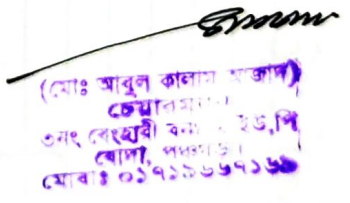 (মোঃ আবুল কালাম আজাদ)
চেয়ারম্যান
৩নং বেংহারী বনগ্রাম ইউ,পি
বোদা, পঞ্চগড়।
মোবাঃ ০১৭১৯৬৬৭১৬৬